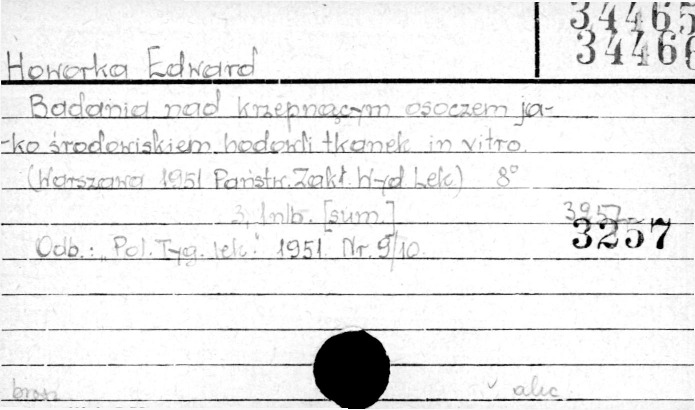 34465
34466
Howorka Edward
Badania nad krzepnącym osoczem ja-
-ko środowiskiem hodowli tkanek in vitro.
(Warszawa 1951 Państw. Zakł. Wyd Lek.) 8°
3, 1nlb. [sum.] 3957
3257
Odb.: "Pol. Tyg. lek." 1951. Nr. 9/10.
brosz
akc